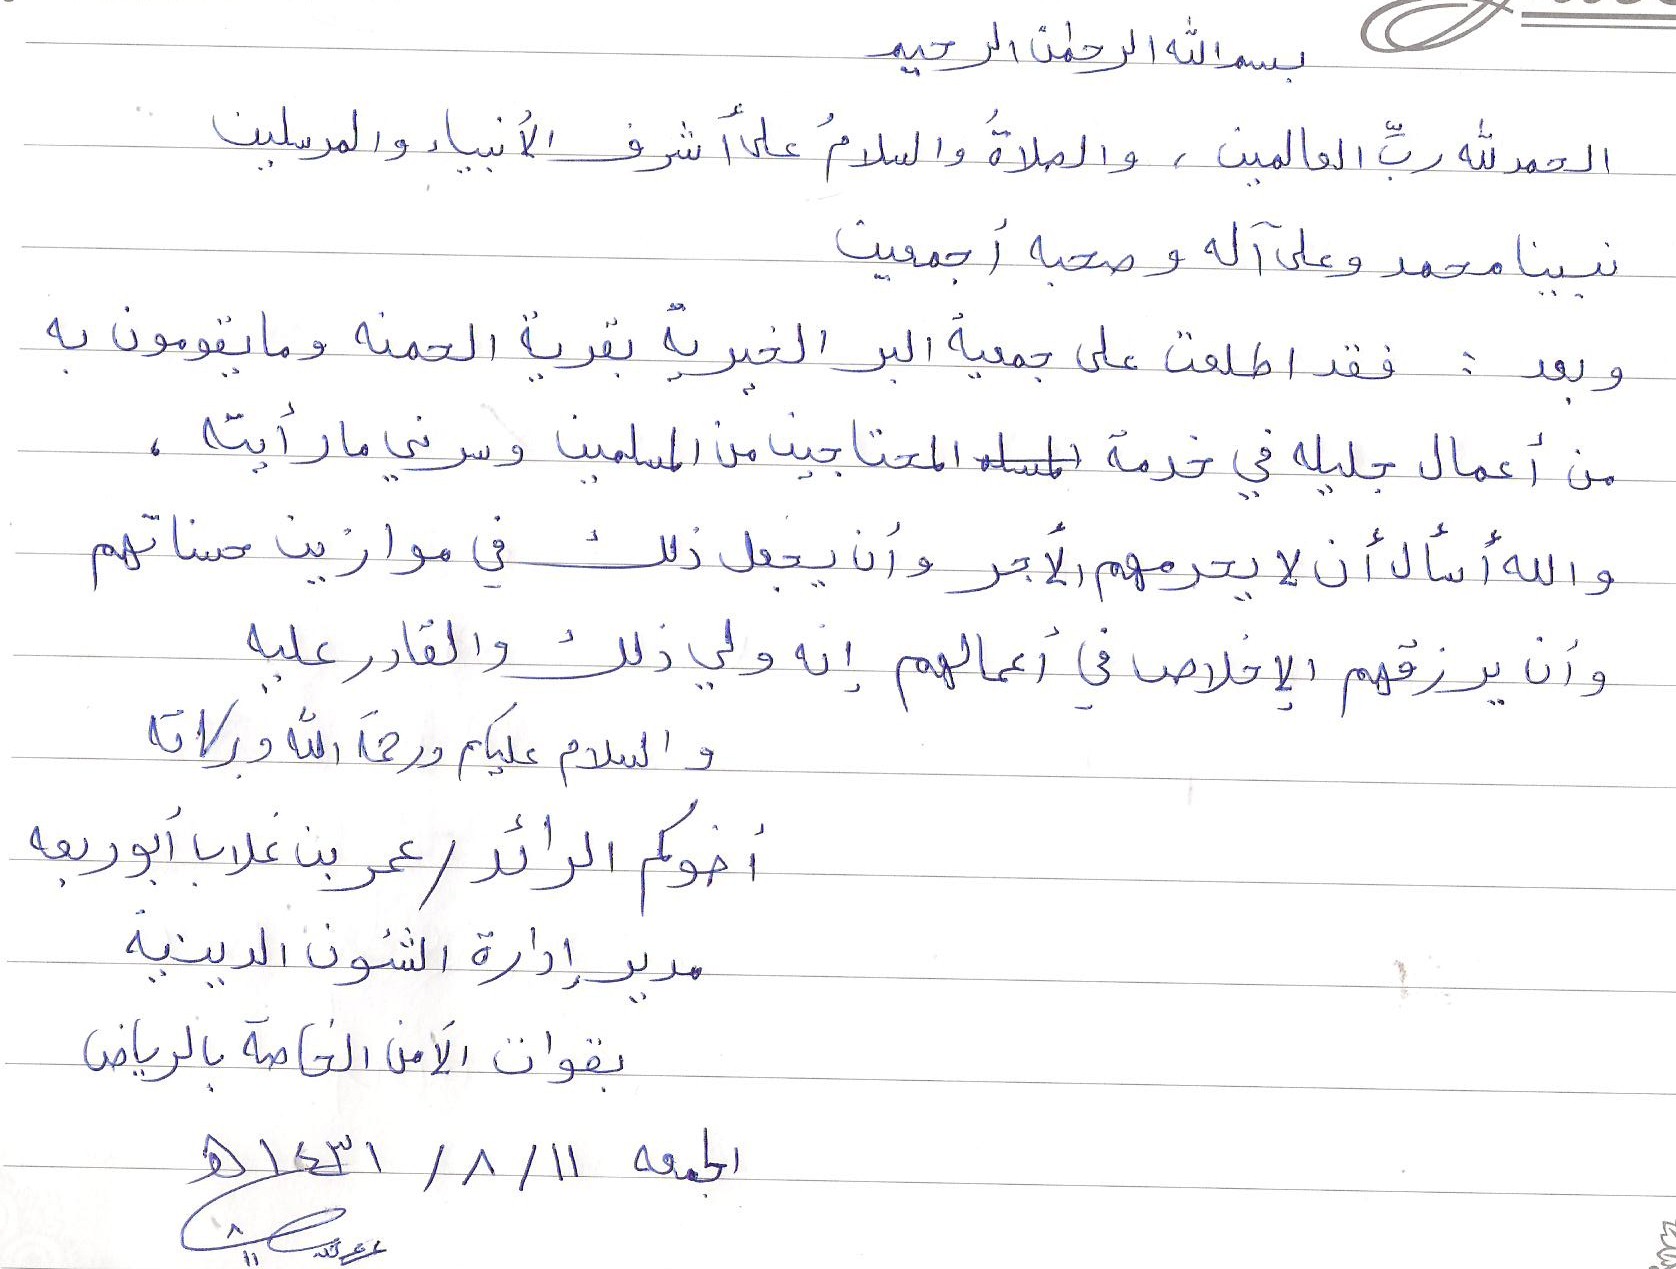 بسم الله الرحمٰن الرحيم
الحمد لله ربِّ العالمين ، والصلاةُ والسلامُ على أشرف الأنبياء والمرسلين
نبينا محمد وعلى آله وصحبه أجمعين
وبعد : فقد اطلعت على جمعية البر الخيرية بقرية الحمنه وما يقومون به
من أعمال جليله في خدمة المحتاجين من المسلمين وسرني ما رأيته ،
والله أسأل أن لا يحرمهم الأجر وأن يجعل ذلك في موازين حسناتهم
وأن يرزقهم الإخلاص في أعمالهم إنه ولي ذلك والقادر عليه
والسلام عليكم ورحمة الله وبركاته
أخوكم الرائد / عمر بن غلاب أبو ربعه
مدير إدارة الشئون الدينية
بقوات الأمن الخاصة بالرياض
الجمعه ١١ / ٨ / ١٤٣١هـ